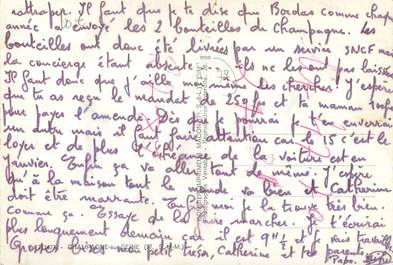 rattraper. Il faut que je te dise que Bordas comme chaque
année doit envoyé les 2 bouteilles de Champagne. Les
bouteilles ont donc été livrées par un service SNCF mais
la concierge étant absente ils ne les ont pas laissées
Il faut donc que j'aille moi même les chercher. J'espère
que tu as reçu le mandat de 250 F et ta maman
plus payer l'amende. Dès que je pourrai je t'en enverrai
un autre mais il faut faire attention car le 15 c'est le
loyer et de plus l'échéance de la voiture est en
Janvier. Enfin ça va aller tout de même. J'espère
qu'à la maison tout le monde va bien et Catherine
doit être marrante. Enfin moi je la trouve très bien
comme ça. Essaye de la faire marcher. Je t'écrirai
plus longuement demain car il est 9h1/2 et je vais travailler
Grosses bises mon petit trésor, Catherine et tes parents.